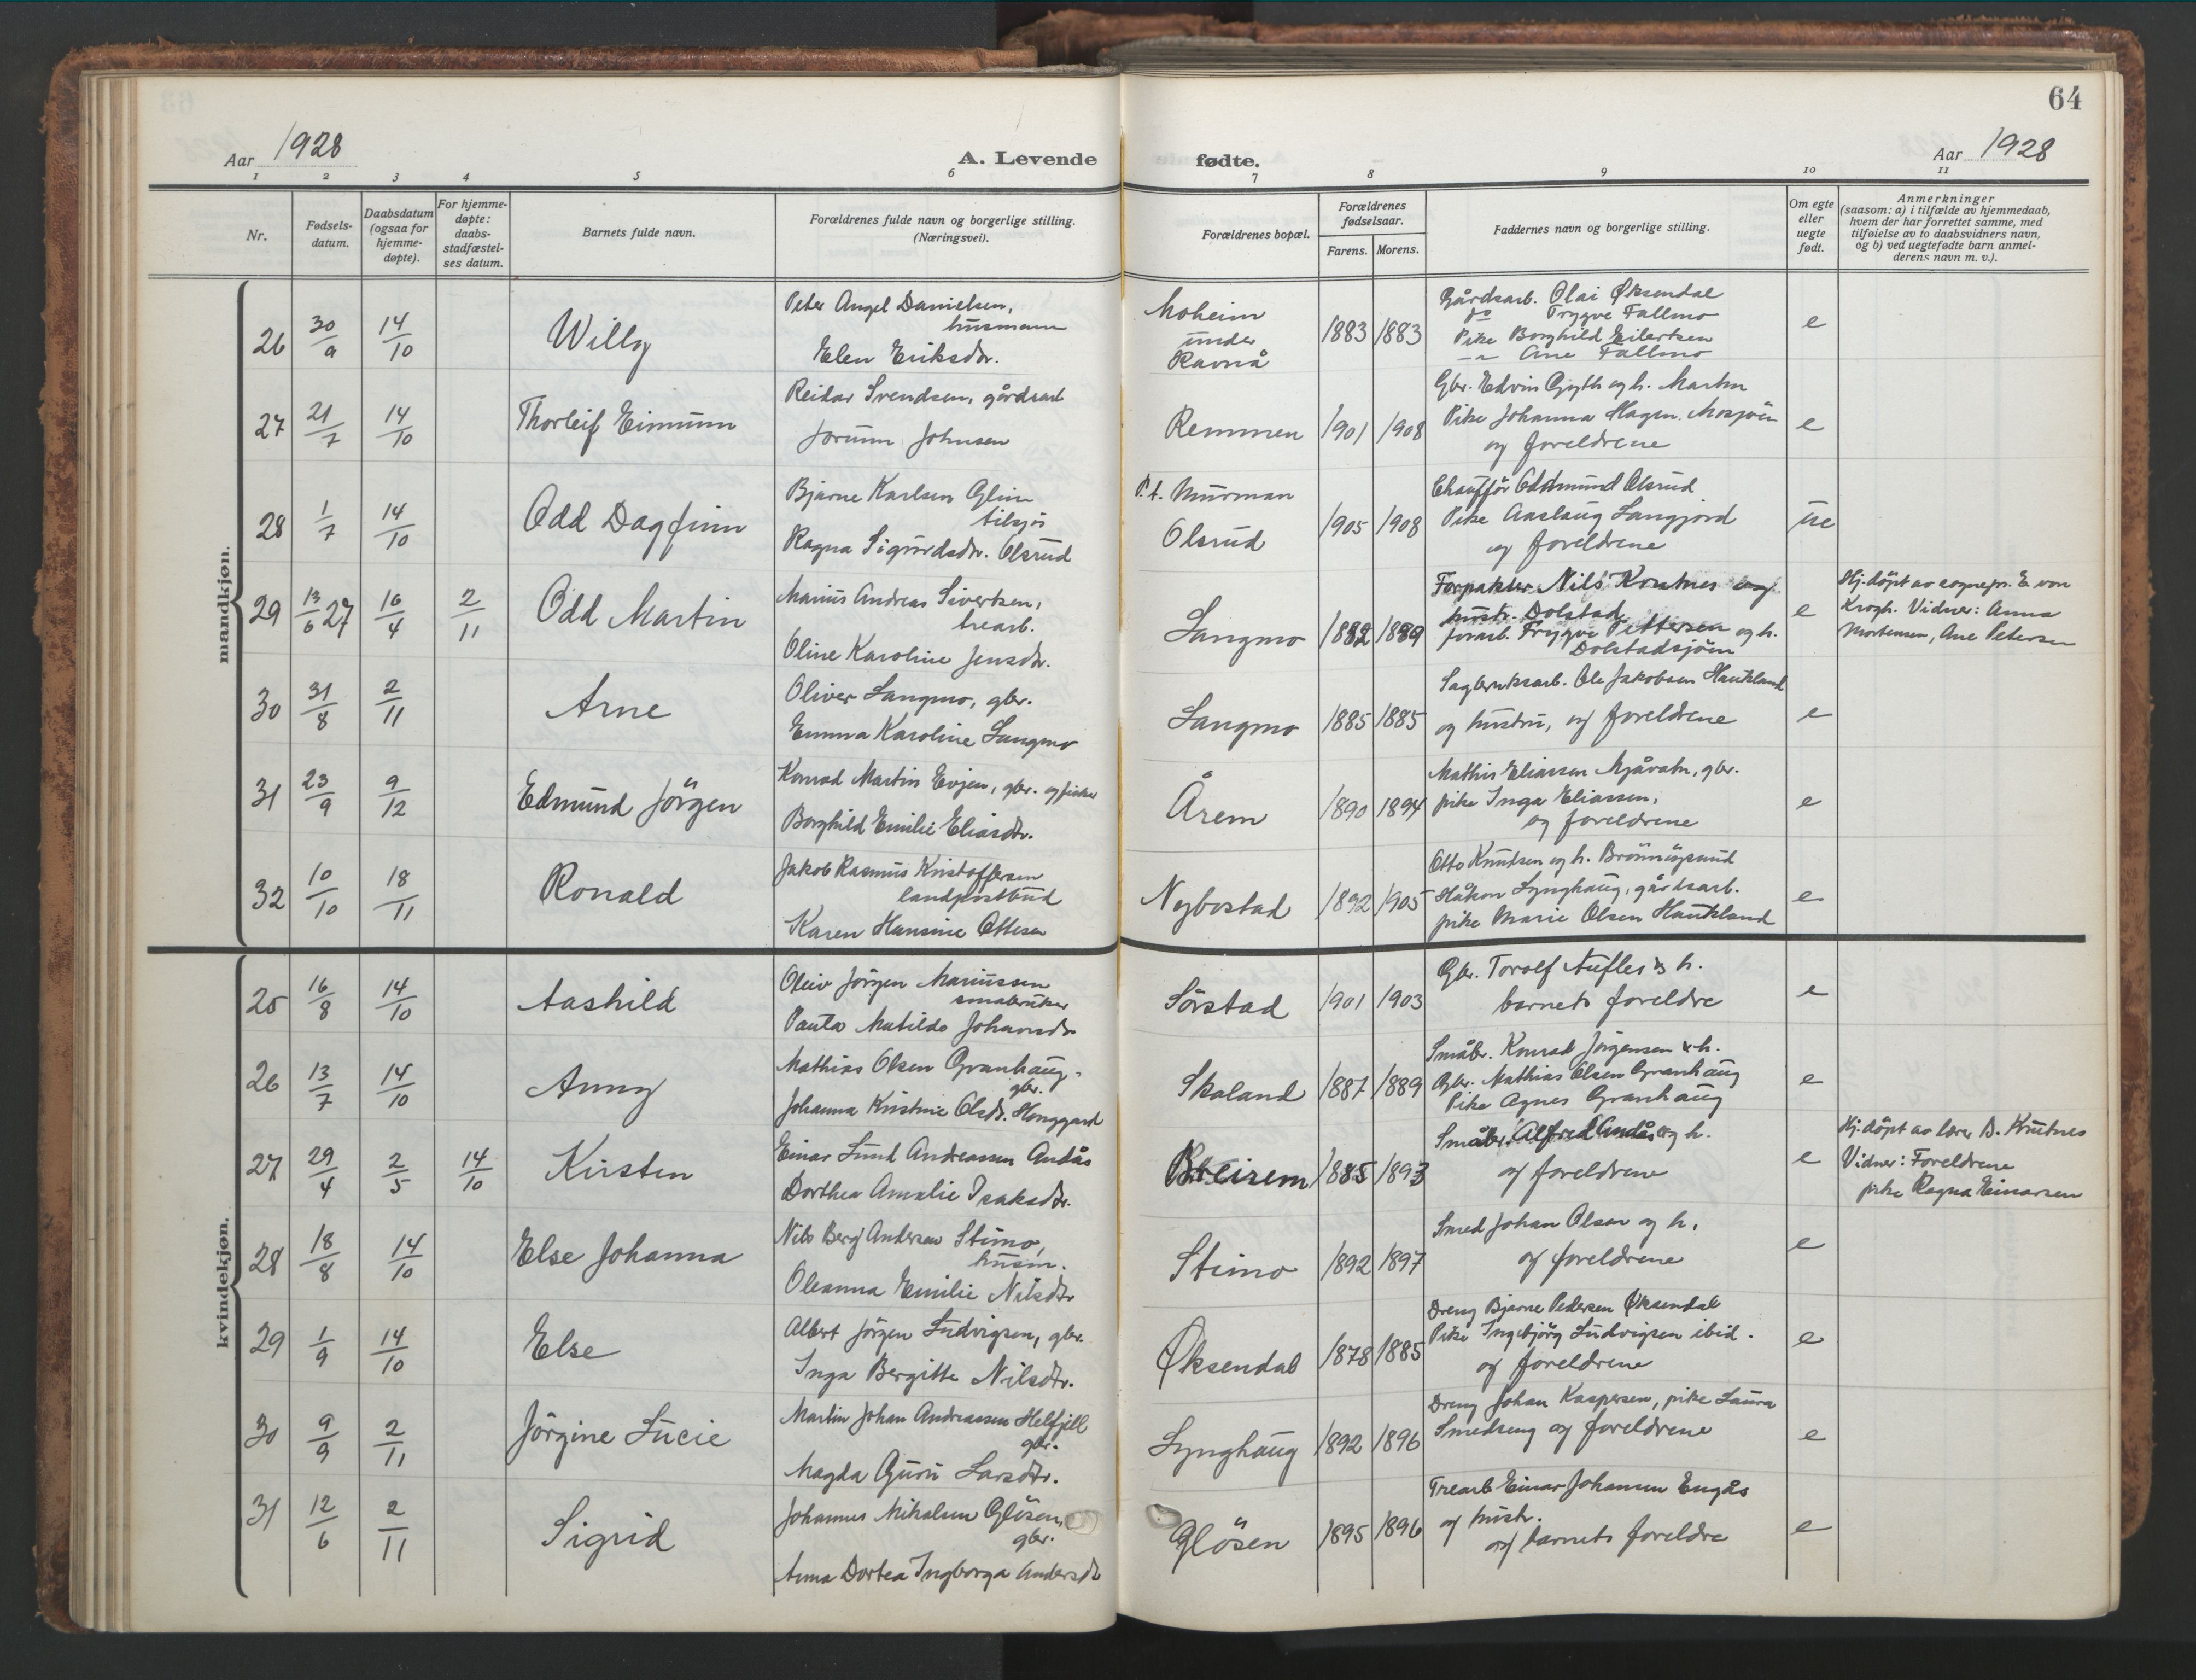 64
Aar 1928
A. Levende
fødte.
Aar 1928
1 2 3 4 5 6 7 8 9 10 11
Nr.
Fødsels-
datum.
Daabsdatum
(ogsaa for
hjemme-
døpte).
For hjemme-
døpte:
daabs-
stadfæstel-
ses datum.
Barnets fulde navn.
Forældrenes fulde navn og borgerlige stilling.
(Næringsvei).
Forældrenes bopæl.
Forældrenes
fødselsaar.
Farens. Morens.
Faddernes navn og borgerlige stilling.
Om egte
eller
uegte
født.
Anmerkninger
(saasom: a) i tilfælde av hjemmedaab,
hvem der har forrettet samme, med
tilføielse av to daabsvidners navn,
og b) ved uegtefødte barn anmel-
derens navn m. v.).
mandkjøn.
26 30/9 14/10 Willy
Peter Angel Danielsen,
husmann
Elen Eriksdtr.
Moheim
under
Ravnå
1883 1883
Gårdsarb. Olai Øksendal
do Trygve Fallmo
Pike Borghild Eilertsen
-"- Ane Fallmo
e
27 21/7 14/10 Thorleif Eimunn
Reidar Svendsen, gårdsarb
Jorunn Johnsen
Remmen 1901 1908
Gbr. Edvin Gjyth og h. Marten
Pike Johanna Hagen. Mosjöen
og foreldrene
e
28 1/7 14/10 Odd Dagfinn
Bjarne Karlsen Glim
tilsjis
Ragna Sigurdsdtr. Olsrud
P.t. Murman
Olsrud
1905 1908
Chauffør Oddmund Olsrud
Pike Aaslaug Langjord
og foreldrene
ue
29 13/6 27 16/4 2/11 Odd Martin
Marius Andreas Sivertsen,
trearb.
Oline Karoline Jensdtr.
Langmo 1882 1889
Forpakter Nils Kontnes og
hustr. Dolstad
forarb. Trygve Pettersen og h.
Dolstadsjöen
e
Hj. döpt av sognepr. E. von
Krogh. Vidner: Anna
Mortensen, Ane Petersen
30 31/8 2/11 Arne
Oliver Langmo, gbr.
Emma Karoline Langmo
Langmo 1885 1885
Sagbruksarb. Ole Jakobsen Hautland
og hustru, og foreldrene
e
31 23/9 9/12 Edmund Jörgen
Konrad Martin Evjen, gbr. og fisker
Borghild Emilie Eliasdtr.
Årem 1890 1894
Mathis Eliassen Mjåvatn, gbr.
pike Inga Eliassen,
og foreldrene
e
32 10/10 18/11 Ronald
Jakob Rasmus Kristoffersen
landpostbud
Karen Hansine Ottesen
Nybostad 1892 1905
Otto Knutsen og h. Brönnöysund
Håkon Lynghaug, gårdsarb.
pike Marie Olsen Hautland
e
kvindekjøn.
25 16/8 14/10 Aashild
Oleiv Jörgen Mariussen
småbruker
Paula Matilde Johansdtr
Sörstad 1901 1903
Gbr. Torolf Aufles & h.
barnets foreldre
e
26 13/7 14/10 Anny
Mathias Olsen Granhaug,
gbr.
Johanna Kristine Olsdtr. Honggard
Skaland 1887 1889
Småbr. Konrad Jörgensen & h.
Gbr. Mathias Olsen Granhaug
Pike Agnes Granhaug
e
27 29/4 2/5 14/10 Kirsten
Einar Lund Andreassen Andås
Dorthea Amalie Isaksdtr.
Breirem 1885 1893
Småbr. Alfred Andås og h.
og foreldrene
e
Hj. döpt av lærer D. Knutnes
Vidner: Foreldrene
pike Ragna Einarsen
28 18/8 14/10 Else Johanna
Nils Berg Andersen Stimo,
husm.
Oleanna Emilie Nilsdtr
Stimo 1892 1897
Smed Johan Olsen og h.
og foreldrene
e
29 1/9 14/10 Else
Albert Jörgen Ludvigsen, gbr.
Inga Bergitte Nilsdtr.
Øksendal 1878 1885
Dreng Bjarne Pedersen Øksendal
Pike Ingebjörg Ludvigsen ibid.
og foreldrene
e
30 9/9 2/11 Jörgine Lucie
Martin Johan Andreassen Helfjell
gbr.
Magda Guru Larsdtr.
Lynghaug 1892 1896
Dreng Johan Kaspersen, pike Laura
Smedseng og foreldrene
e
31 12/6 2/11 Sigrid
Johannes Mikalsen Glösen,
gbr.
Anna Dortea Ingborga Andersdtr
Glösen 1895 1896
Trearb Einar Johansen Engås
og hustr.
og barnets foreldre
e